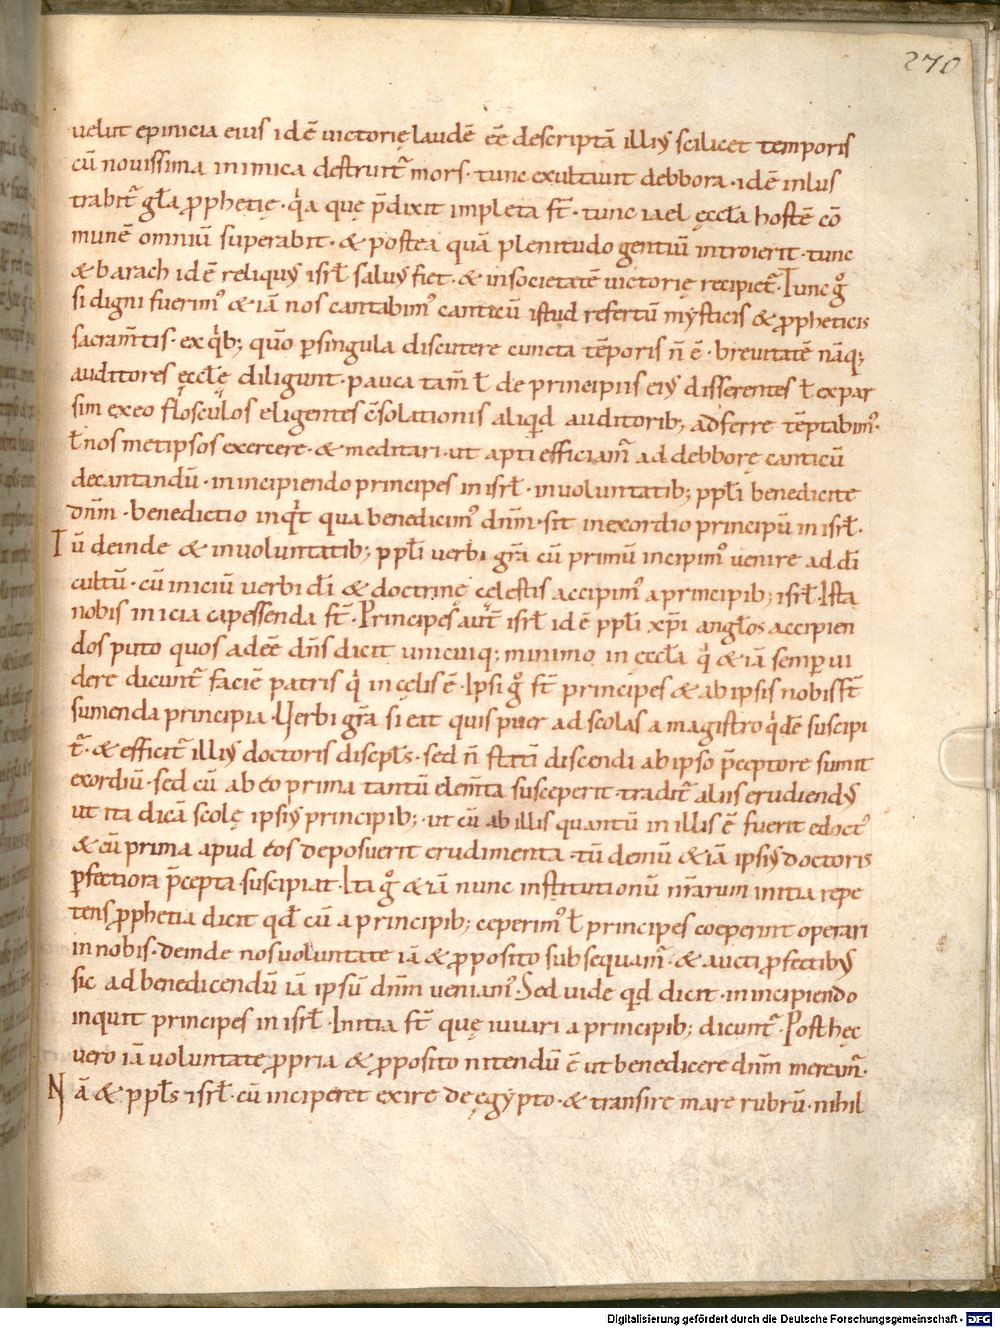 270
uelut epinicia eius idē uictorię laudē ēē descriptā illiꝰ scilicet temporis
cū nouissima inimica destruit᷑ mors · tunc exultauit debbora · idē inlus
trabit᷑ gła ꝓphetię · q̇a quę p̄dixit impleta st̄ · tunc iael ęccła hostē cō
munē omniū superabit · & postea quā plenitudo gentiū introierit · tunc
& barach idē reliquꝰ isrł saluꝰ fiet · & insocietatē uictorię recipiet᷑ · Tunc g̊
si digni fuerimꝰ & iā nos cantabimꝰ canticū istud refertū mẏsticis & ꝓpheticis
sacram̄tis · ex q̇b; quō ꝑsingula discutere cuncta tēporis n̄ ē · breuitatē nāq;
auditores ęccłę diligunt · pauca tam̄ ł de principiis eiꝰ disserentes ł expar
sim exeo flosculos eligentes c̄solationis aliqḋ auditorib; adferre tēptabimꝰ ·
ł nos metipsos exercere · & meditari · ut apti efficiam᷑ ad debborę canticū
decantandū · in incipiendo principes in isrł · in uoluntatib; ppłi benedicite
dn̄m · benedictio inq̇t qua benedicimꝰ dn̄m · sit inexordio principū in isrł ·
Tū deinde & in uoluntatib; ppłi uerbi gr̄a cū primū incipimꝰ uenire ad dī
cultū · cū iniciū uerbi dī & doctrinę cęlestis accipimꝰ a principib; isrł · Ista
nobis inicia capessenda st̄ · Principes aut̄ isrł idē ppłi xp̄i angłos accipien
dos puto quos adeē dn̄s dicit unicuiq; minimo in eccła q̇ & iā semꝑ ui
dere dicunt᷑ faciē patris q̇ in cęlis ē · Ipsi g̊ st̄ principes & ab ipsis nobis st̄
sumenda principia · Uerbi gr̄a si eat quis puer ad scolas a magistro q̇dē suscipi
t᷑ · & efficit᷑ illiꝰ doctoris discipłs · sed n̄ statī discendi ab ipso p̄ceptore sumit
exordiū · sed cū ab eo prima tantū elem̄ta susceperit · tradit᷑ aliis erudiendꝰ
ut ita dicā scolę ipsiꝰ principib; · ut cū ab illis quantū in illis ē fuerit edoctꝰ
& cū prima apud eos deposuerit erudimenta · tū demū & iā ipsiꝰ doctoris
ꝑfectiora p̄cepta suscipiat · Ita g̊ & iā nunc institutionū nr̄arum initia repe
tens ꝓphetia dicit qđ cū a principib; ceperimꝰ ł principes coeperint operari
in nobis · deinde nos uoluntate iā & ꝓposito subsequam᷑ · & aucti ꝓfectibꝰ
sic ad benedicendū iā ipsū dn̄m ueniamꝰ · Sed uide qḋ dicit · in incipiendo
inquit principes in isrł · Initia st̄ quę iuuari a principib; dicunt᷑ · Post hęc
uero iā uoluntate ꝓpria & ꝓposito nitendū ē ut benedicere dn̄m meream᷑ ·
Nā & ppłs isrł · cū inciperet exire de ęgẏpto · & transire mare rubrū · nihil
Digitalisierung gefördert durch die Deutsche Forschungsgemeinschaft - DFG